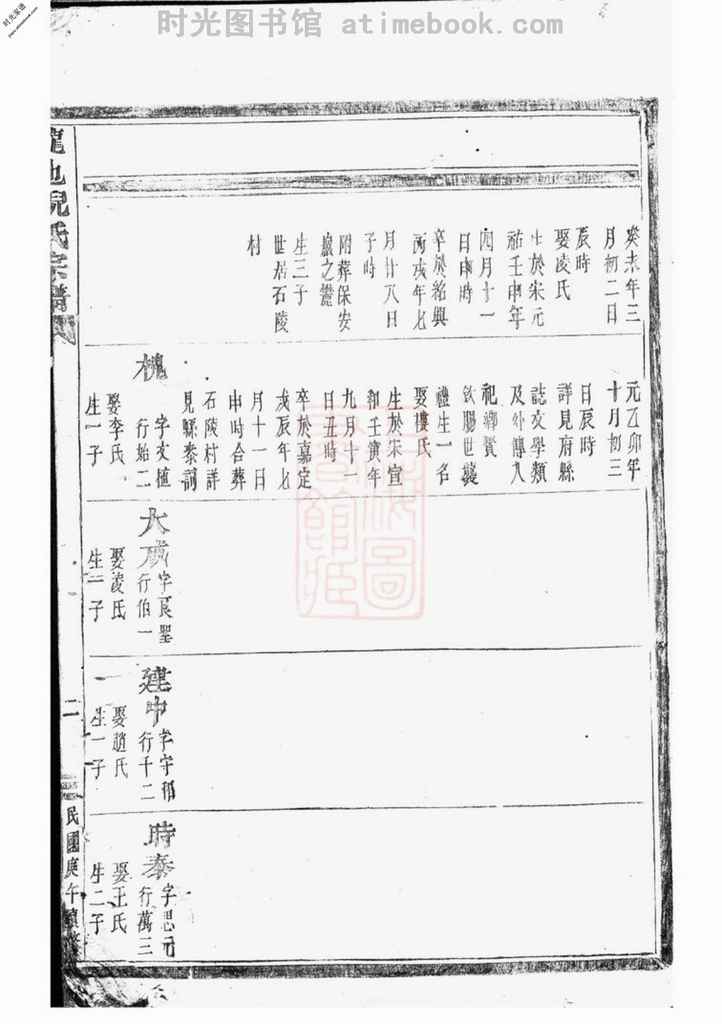 时光图书馆 atimebook.com
时光家谱
www.atimebook.com
癸未年三
月初二日
辰時
娶凌氏
生於宋元
祐壬申年
四月十一
日申時
卒於紹興
丙戌年七
月廿八日
子時
附葬保安
之
生三子
世居石陵
村
元乙卯年
十月初三
日辰時
詳見府縣
誌文學類
及外傳入
祀鄉賢
欽賜世襲
禮生一名
娶樓氏
生於宋宣
和壬寅年
九月十一
日丑時
卒於嘉定
戊辰年七
月十一日
申時合葬
石陵村詳
見縣泰詞
槐
字文植
行始二
娶李氏
生一子
大成
字良聖
行伯一
娶凌氏
生一子
建中
字守
行千二
娶趙氏
生一子
時泰
字思元
行萬三
娶王氏
生二子
龍池倪氏宗譜
二
民國庚午續修